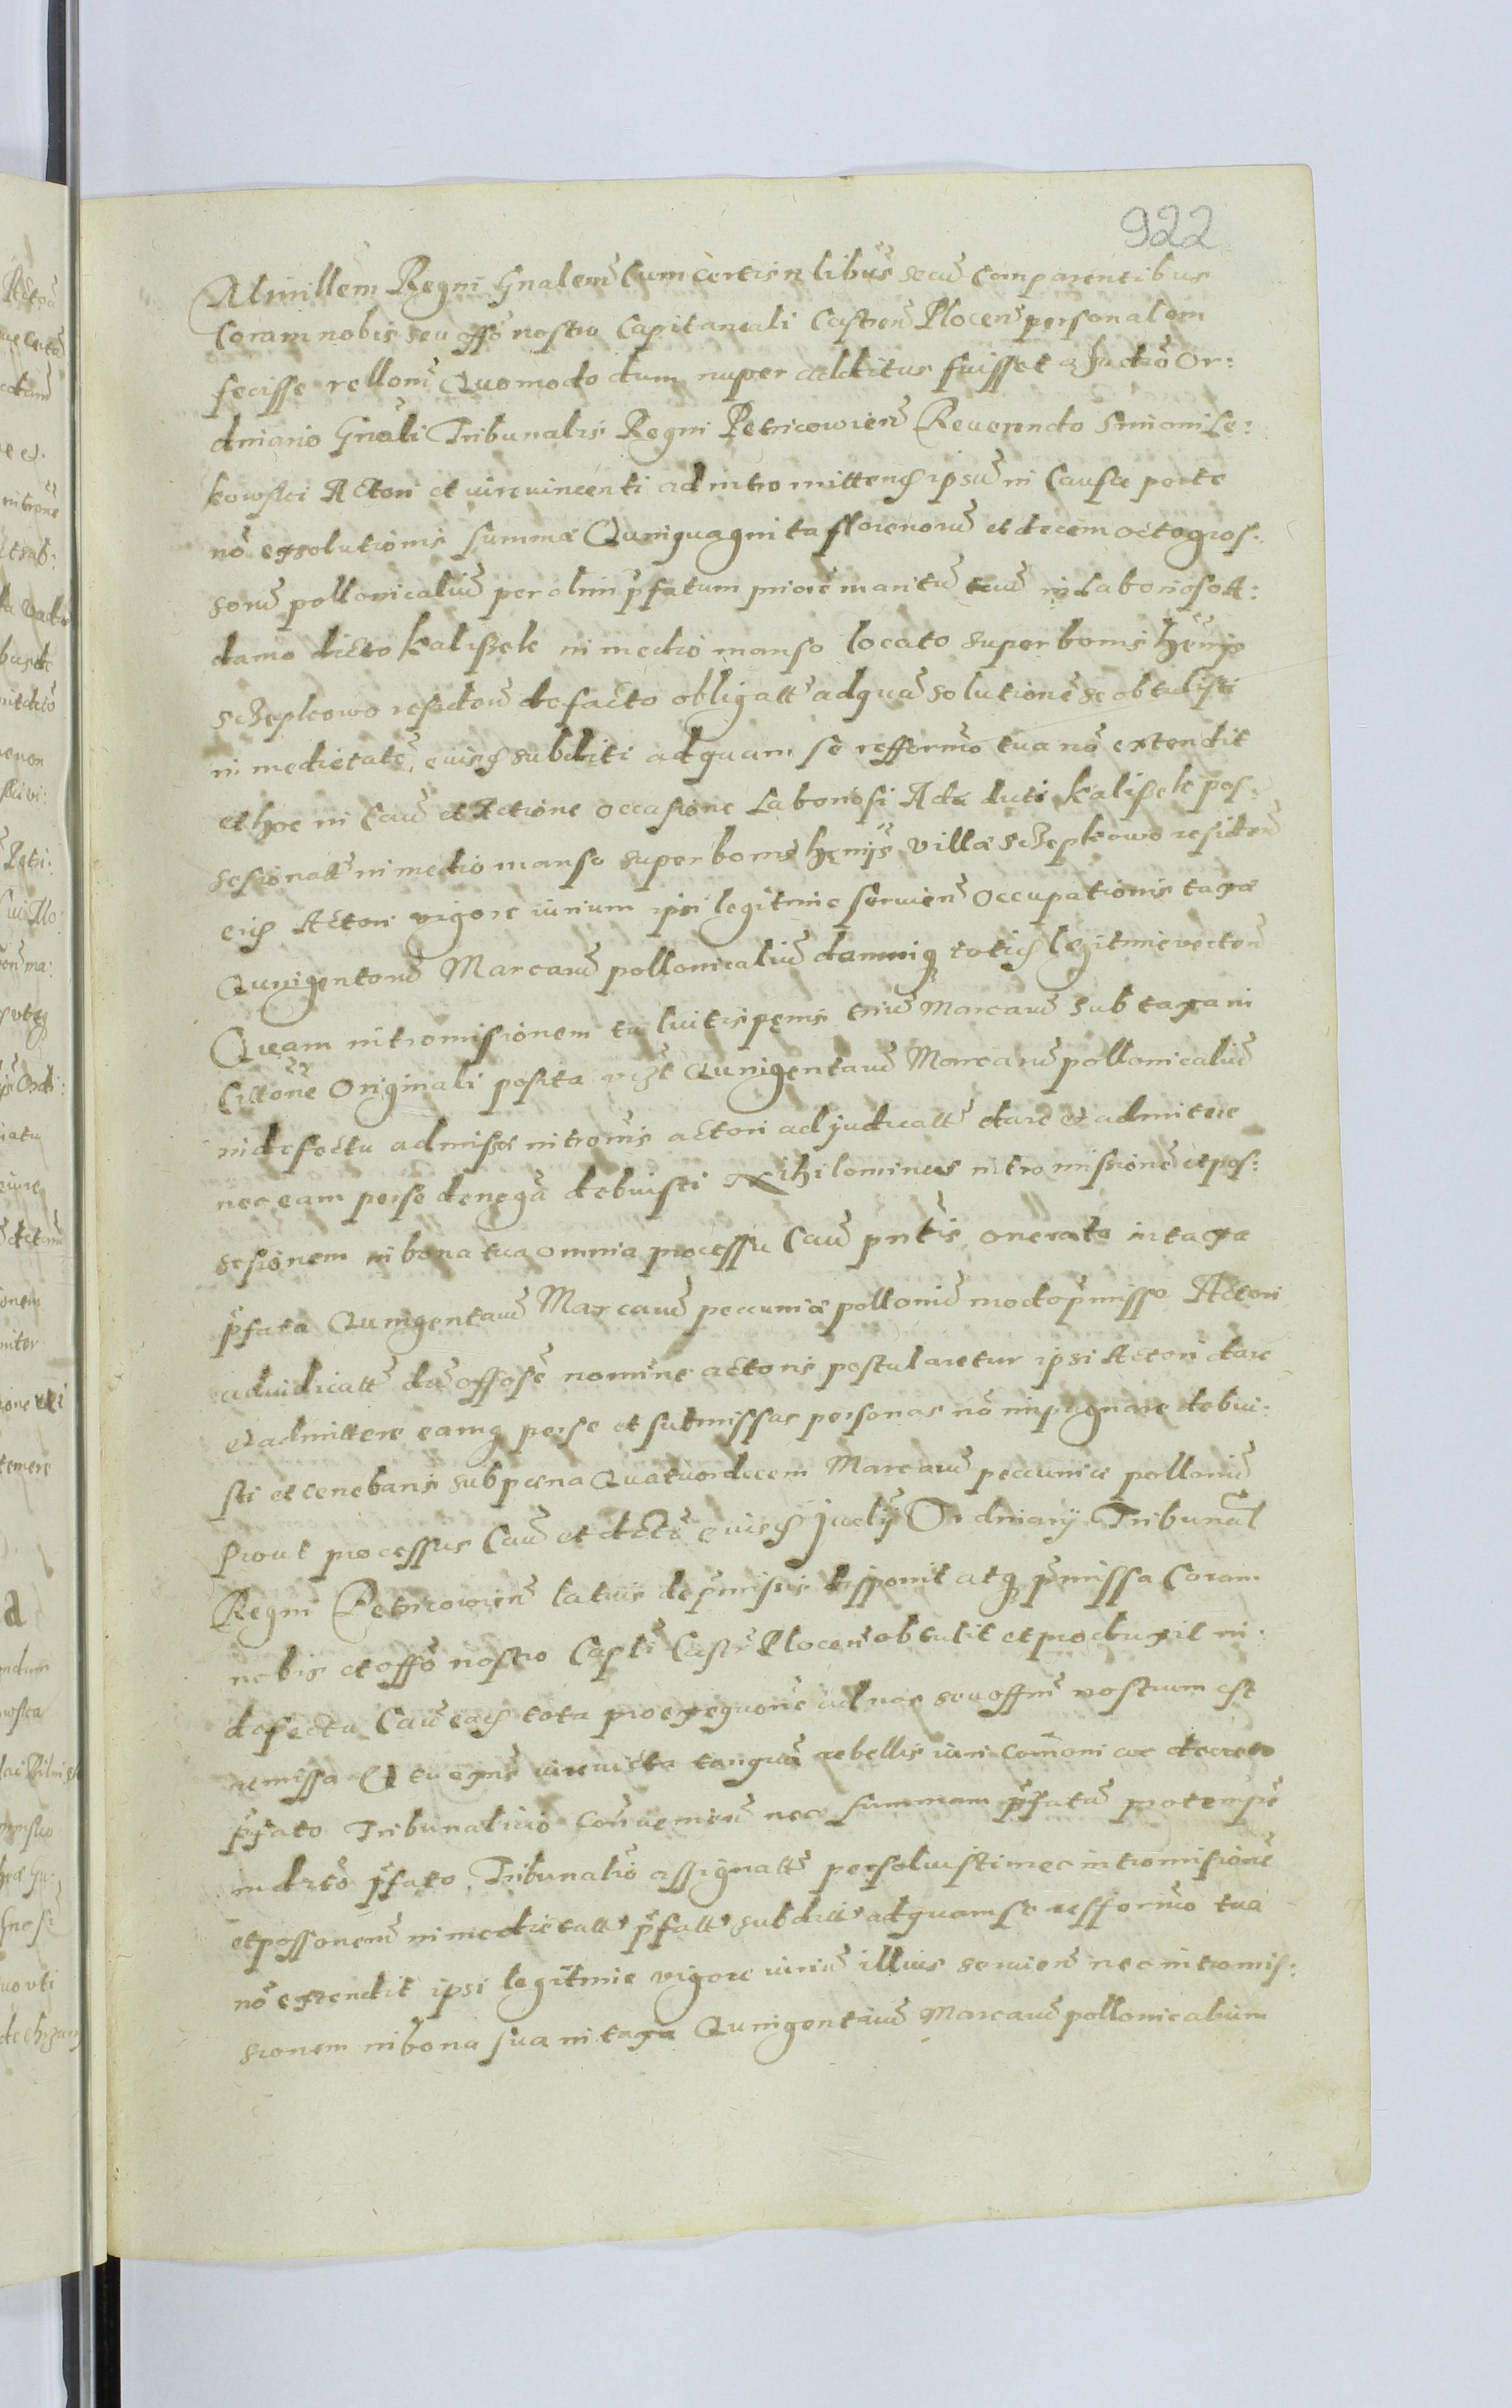 922
Alminllem Regni Gnalem Cum certis nlibus secu comparentibus
Coram nobis seu offo nostro Capitaneali Castren Plocen personalem
fecisse rellom Quomodo dum nuper additus fuisset a Judio Or:
dinario Gnali Tribunalis Regni Petricowien Reuerendo Simoni Le:
kowski Actori et iurevincenti ad intromittend ipsu in Causa parte
no exsolutionis summæ Quinquaginta florenoru et decem octo gros:
soru pollonicaliu per olim pfatum priore maritu tuu in Laborioso A:
damo dicto Kaliszek in medio manso locato super bonis hęmis
sczepkowo residen de facto obligatt ad qua solutione se obtulisti
in medietate, euisd subditi ad quam se refformo tua no extendit
et hoc in Cau et Actione occasione Laboriosi Ada duti Kaliszek pos:
sesionatt in medio manso super bonis hęmis villæ Sczepkowo residen
eid Actori vigore iurium ipsi legitime servien Occupationis taxæ
Quingentoru Marcaru pollonicaliu damniq totid legitime vecten
Quam intromissionem tu luitis pęnis triu Marcaru sub taxa in
Cittone Originali posita vizt Quingentaru Marcaru pollonicaliu
in defectu admissæ intronis actori adjudicatt dare et admitere
nec eam perse denega debuisti Nihilominus intromissione et pos:
sesionem in bona tua omnia processu Cau pntis onerato in taxa
pfata Quingentaru Marcaru peccuniæ polloniu modo pmisso Actori
adiudicatt du offose nomine actoris postularetur ipsi Actori dare
et admittere eamq perse et submissas personas no impugnare debui:
sti et tenebaris sub pœna Quatuordecem Marcaru peccuniæ polloniu
prout processus Cau et dctu euisd Judij Ordinarij Tribunal
Regni Petricowien latius de pmissis disponit atq pmissa Coram
nobis et offo nostro Capli Castr Plocen obtulit et produxit in
defectu Cau ead tota pro exequone ad nos seu offm nostrum est
remissa Et tu exns iurevicta tanqua rebellis iuri comoni ac decreto
pfato Tribunalicio Contravenien nec summam pfatu pro tempe
in dcto pfato Tribunalio assignatt persoluisti nec intromissione
et possonem in medietatt pfatt subditt ad quam se refformo tua
no extendit ipsi legitime vigore iuriu illius servien nec intromis:
sionem in bona sua in taxa Quingentaru Marcaru pollonicalium